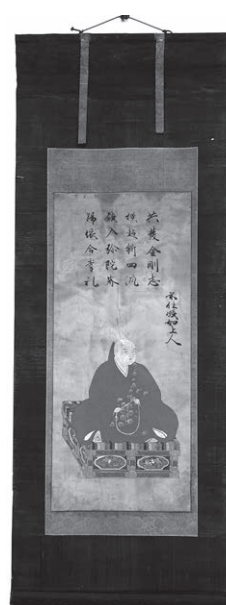 共發金剛志
横超断四流
願入弥陀界
帰依合掌礼
前住顕如上人